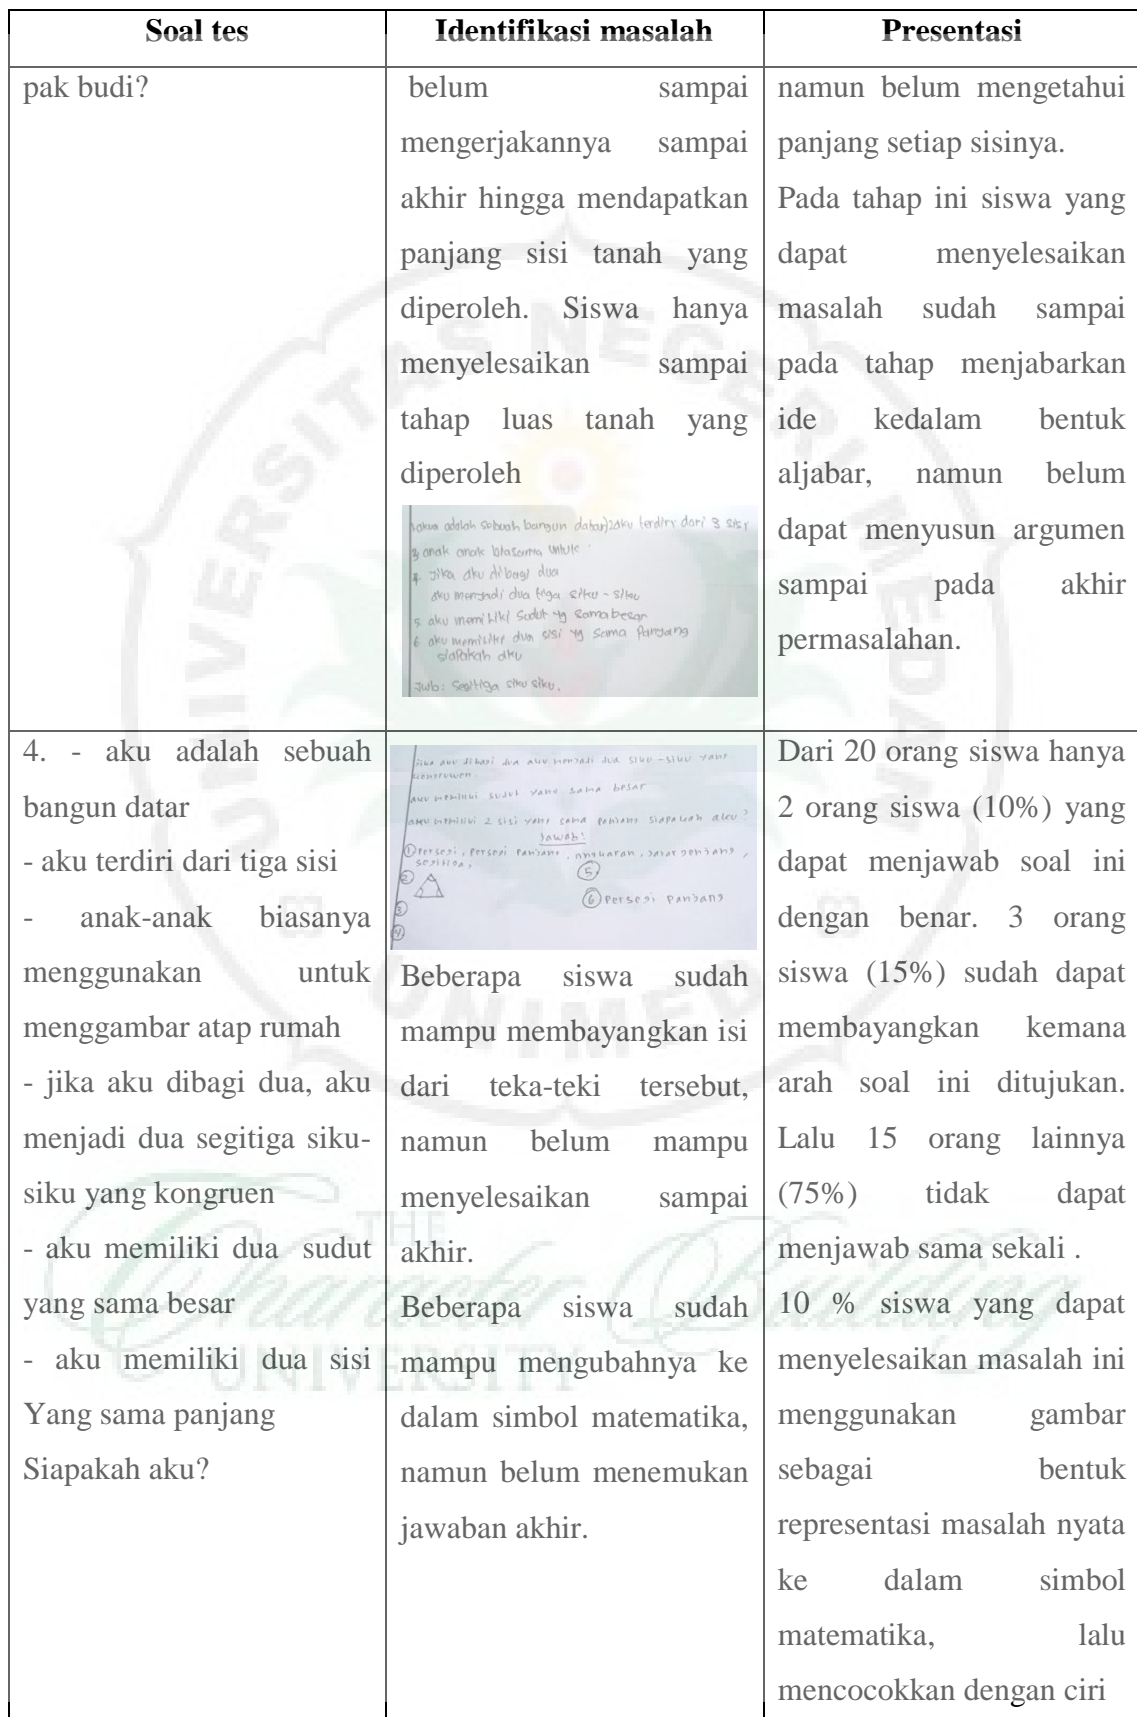 Soal tes
Identifikasi masalah
Presentasi
pak budi?
belum sampai
mengerjakannya sampai
akhir hingga mendapatkan
panjang sisi tanah yang
diperoleh. Siswa hanya
menyelesaikan sampai
tahap luas tanah yang
diperoleh
adalah sebuah bangun datar) 2 aku terdiri dari 3 sisi
3 anak anak biasanya untuk
4. Jika aku dibagi dua
aku menjadi dua tiga siku - siku
5 aku memiliki sudut yg sama besar
6 aku memiliki dua sisi yg sama panjang
siapakah aku
Jwb: Segitiga siku siku.
namun belum mengetahui
panjang setiap sisinya.
Pada tahap ini siswa yang
dapat menyelesaikan
masalah sudah sampai
pada tahap menjabarkan
ide kedalam bentuk
aljabar, namun belum
dapat menyusun argumen
sampai pada akhir
permasalahan.
4. - aku adalah sebuah
bangun datar
- aku terdiri dari tiga sisi
- anak-anak biasanya
menggunakan untuk
menggambar atap rumah
- jika aku dibagi dua, aku
menjadi dua segitiga siku-
siku yang kongruen
- aku memiliki dua sudut
yang sama besar
- aku memiliki dua sisi
Yang sama panjang
Siapakah aku?
jika aku dibagi dua aku menjadi dua siku-siku yang
kongruen.
aku memiliki sudut yang sama besar
aku memiliki 2 sisi yang sama panjang siapakah aku?
Jawab:
① Persegi, Persegi Panjang, , Jajar genjang,
segitiga,
②
③
④
⑤
⑥ Persegi Panjang
Beberapa siswa sudah
mampu membayangkan isi
dari teka-teki tersebut,
namun belum mampu
menyelesaikan sampai
akhir.
Beberapa siswa sudah
mampu mengubahnya ke
dalam simbol matematika,
namun belum menemukan
jawaban akhir.
Dari 20 orang siswa hanya
2 orang siswa (10%) yang
dapat menjawab soal ini
dengan benar. 3 orang
siswa (15%) sudah dapat
membayangkan kemana
arah soal ini ditujukan.
Lalu 15 orang lainnya
(75%) tidak dapat
menjawab sama sekali .
10 % siswa yang dapat
menyelesaikan masalah ini
menggunakan gambar
sebagai bentuk
representasi masalah nyata
ke dalam simbol
matematika, lalu
mencocokkan dengan ciri
UNIVERSITAS NEGERI MEDAN
UNIMED
THE
Character Building
UNIVERSITY